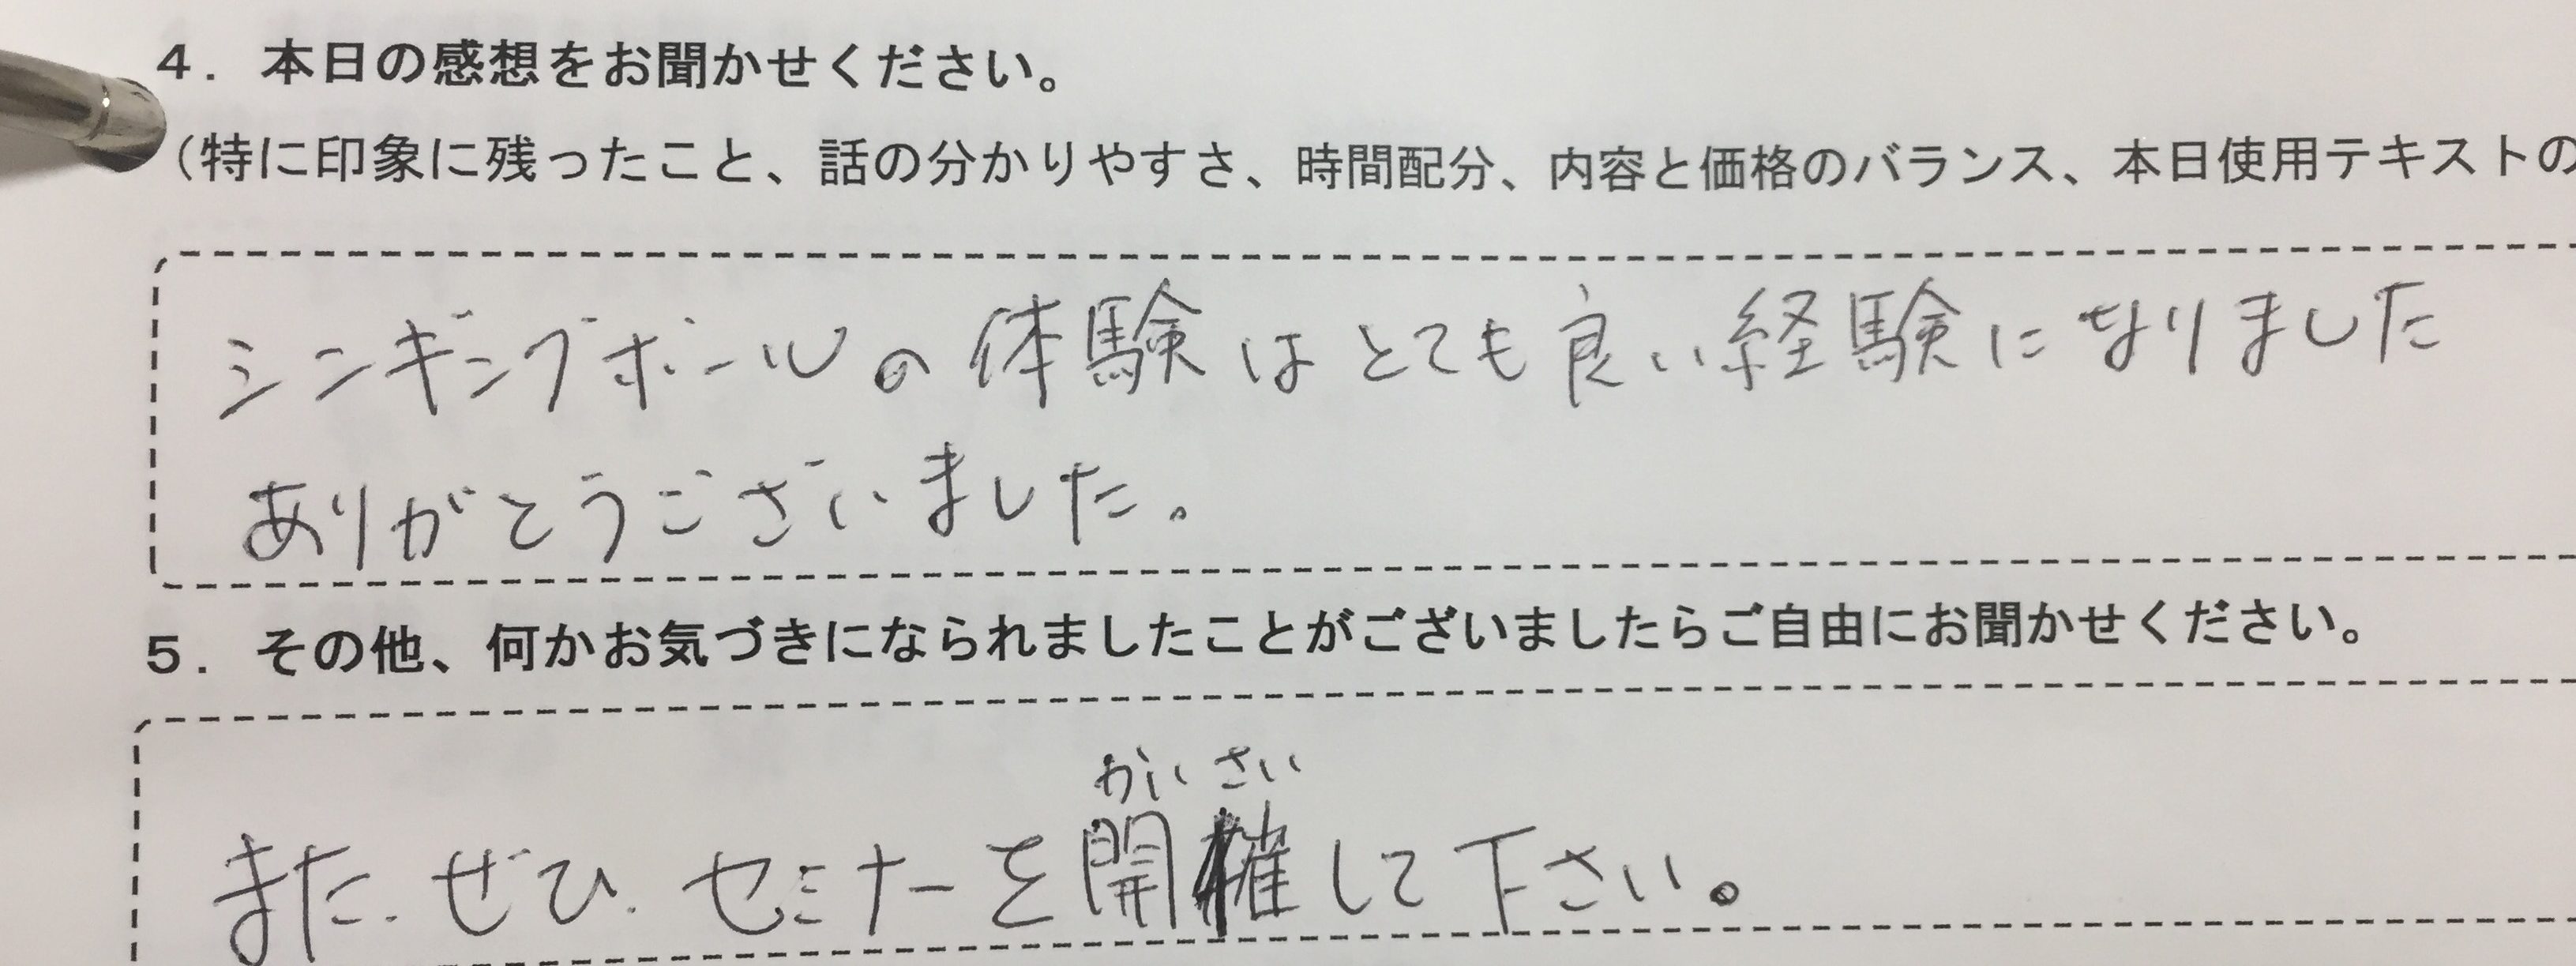 4．本日の感想をお聞かせください。
（特に印象に残ったこと、話の分かりやすさ、時間配分、内容と価格のバランス、本日使用テキストの
シンギングボールの体験はとても良い経験になりました
ありがとうございました。
5．その他、何かお気づきになられましたことがございましたらご自由にお聞かせください。
かいさい
また、ぜひ、セミナーを開催して下さい。